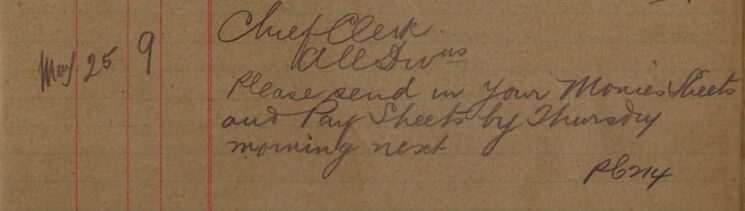 May 25 9 Chief Clerk
All Divns
Please send in your Monies Sheets
and Pay Sheets by Thursday
morning next